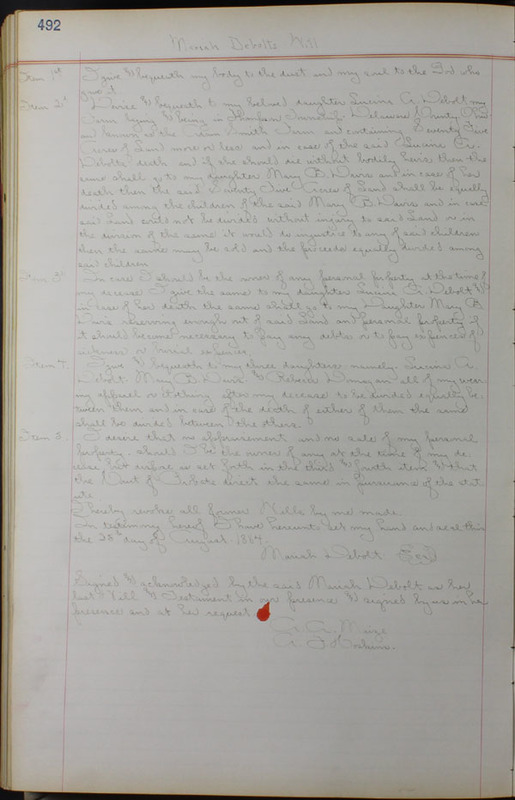 492
Mariah Debolts Will
Item 1st I give & bequeath my body to the dust and my soul to the God who
gave it
Item 2d Devise & bequeath to my beloved daughter Lucina A. Debolt my
Farm lying & being in Thompson Township Delaware County Ohio
and known as the Smith Farm and containing Seventy Five
Acres of Land more or less and in case of the said Lucina A.
Debolts death and if she should die without bodily heirs then the
same shall go to my daughter Mary B. Davis and in case of her
death then the said Seventy Five Acres of Land shall be equally
divided among the children of the said Mary B. Davis and in case
said Land could not be divided without injury to said Land or in
the division of the same it would be injustice to any of said children
then the same may be sold and the proceeds equally divided among
said children
Item 3d In case I should be the owner of any personal property at the time of
my decease I give the same to my daughter Lucina A. Debolt &
in case of her death the same shall go to my Daughter Mary B.
Davis reserving enough out of said Land and personal property if
it should become necessary to pay any debts or to pay expences of
sickness or burial expences.
Item 4. I give & bequeath to my three daughters namely: Lucina A.
Debolt, Mary B. Davis & Rebecca all of my wear-
ing apparel or clothing after my decease to be divided equally be-
tween them and in case of the death of either of them the same
shall be divided between the others.
Item 5. I desire that no appraisement and no sale of my personal
property should I be the owner of any at the time of my de-
cease but dispose as set forth in the third & fourth item & that
the Court of Probate direct the same in pursuance of the stat-
ute
I hereby revoke all former Wills by me made.
In testimony hereof I have hereunto set my hand and seal this
the 25th day of August 1884.
Mariah Debolt Seal
Signed & acknowledged by the said Mariah Debolt as her
last Will & Testament in our presence & signed by us in her
presence and at her request
Hoskins.